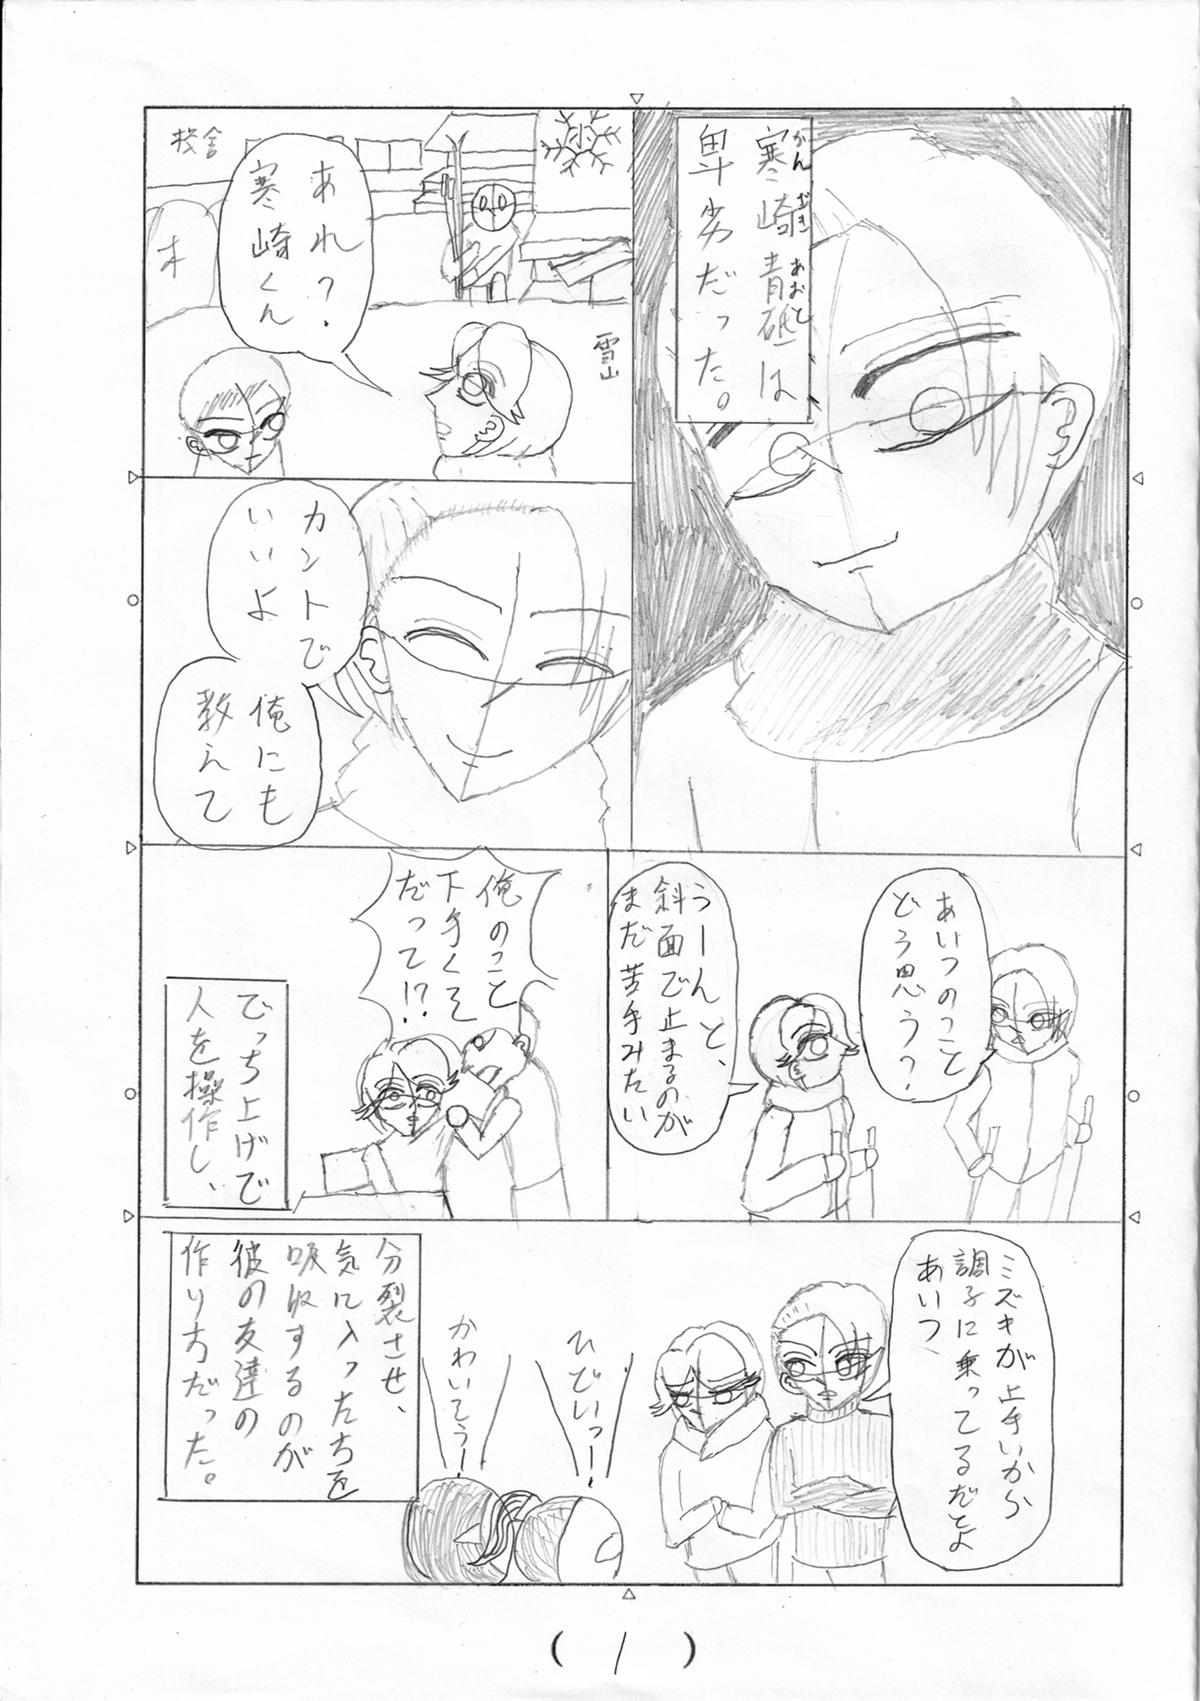 寒崎青砥は
かんざきあおと
卑劣だった。
校舎
木
雪山
あれ?
寒崎くん
カントで
いいよ
俺にも
教えて
あいつのこと
どう思う?
うーんと、
斜面で止まるのが
まだ苦手みたい
俺のこと
下手くそ
だって!?
でっち上げで
人を操作し、
ミズキが上手いから
調子に乗ってるだとよ
あいつ
ひどいっー
かわいそうー
分裂させ、
気に入ったちを
吸収するのが
彼の友達の
作り方だった。
(1)